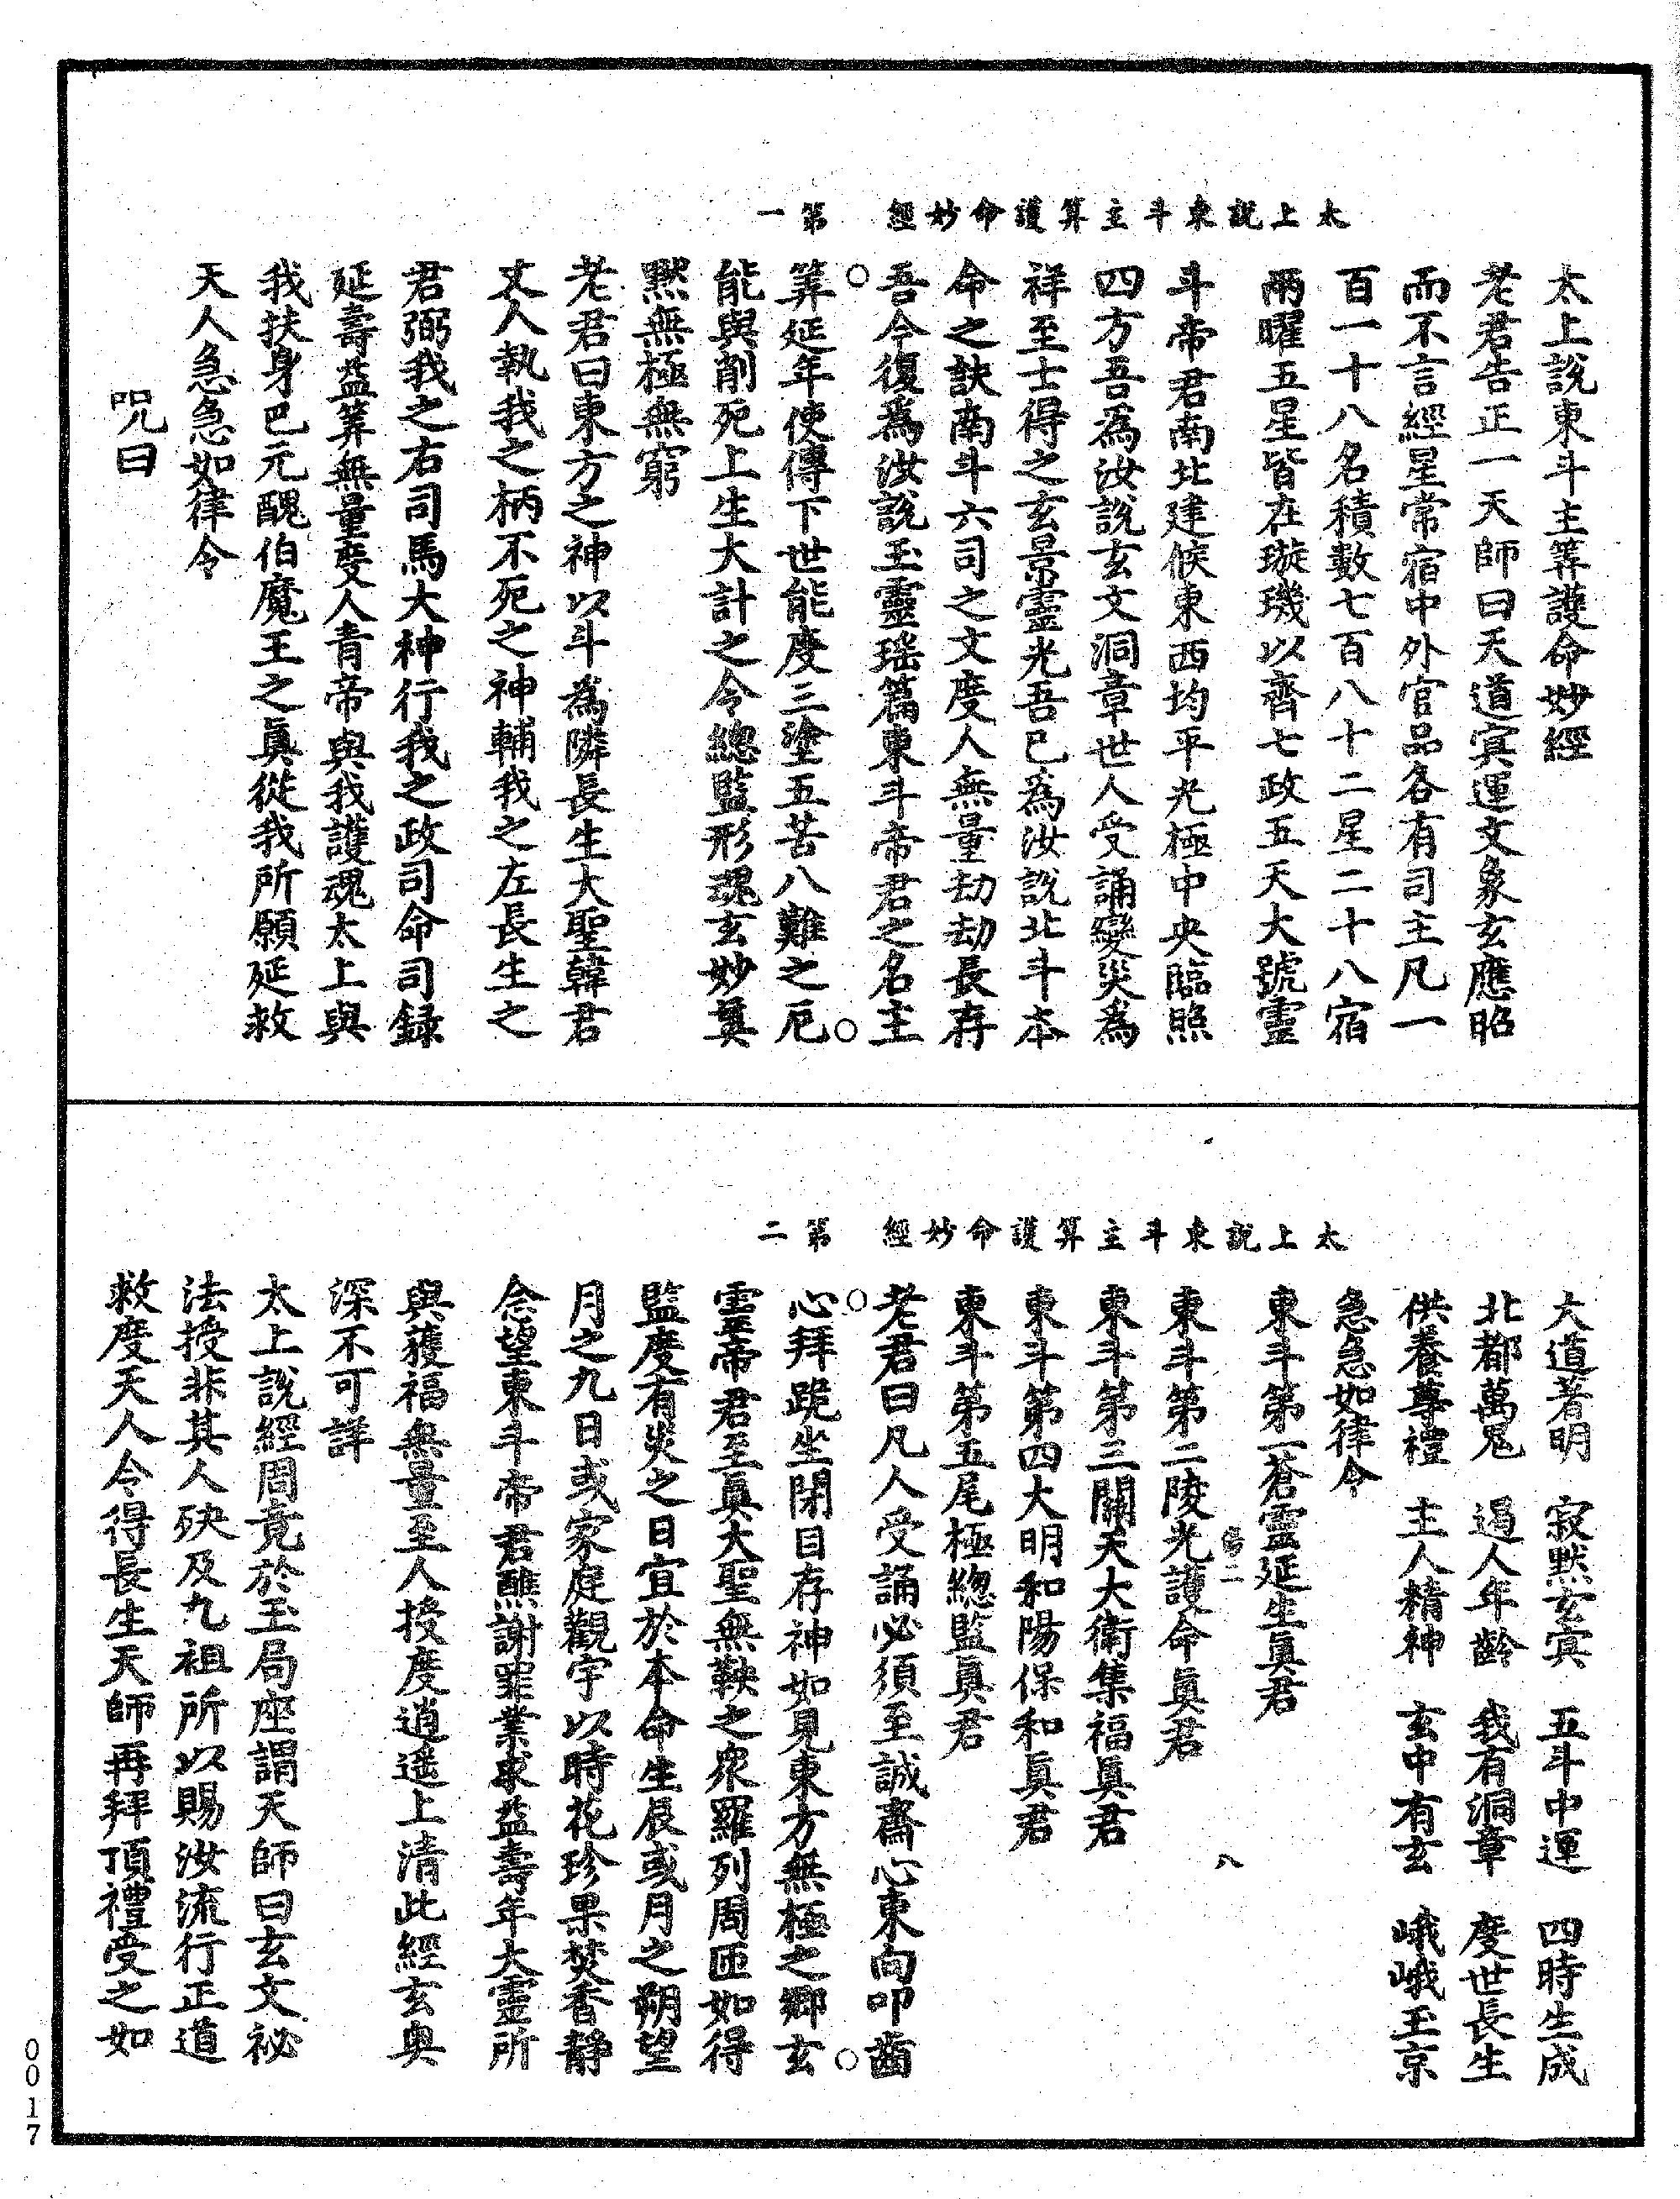 太上說東斗主算護命妙經　第一
太上說東斗主筭護命妙經
老君告正一天師曰天道㝠運文象玄應昭
而不言經星常宿中外官品各有司主凡一
百一十八名積數七百八十二星二十八宿
兩曜五星皆在璇璣以齊七政五天大號靈
斗帝君南北建候東西均平光極中央臨照
四方吾為汝說玄文洞章世人受誦變災為
祥至士得之玄景靈光吾已為汝說北斗本
命之訣南斗六司之文度人無量劫劫長存
吾今復為汝說玉靈瑶篇東斗帝君之名主
筭延年使傳下世能度三塗五苦八難之厄
能與削死上生大計之令總監形魂玄妙㝠
默無極無窮
老君曰東方之神以斗為隣長生大聖韓君
丈人執我之柄不死之神輔我之左長生之
君弼我之右司馬大神行我之政司命司録
延壽益筭無量度人青帝與我護魂太上與
我扶身巴元醜伯魔王之眞從我所願延救
天人急急如律令
咒曰
太上說東斗主算護命妙經　第二
大道著明　寂默玄㝠　五斗中運　四時生成
北都萬鬼　遏人年齡　我有洞章　度世長生
供養尊禮　主人精神　玄中有玄　峨峨玉京
急急如律令
東斗第一蒼靈延生眞君
二　八
東斗第二陵光護命眞君
東斗第三關天大衛集福眞君
東斗第四大明和陽保和眞君
東斗第五尾極總監眞君
老君曰凡人受誦必須至誠齋心東向叩齒
心拜跪坐閉目存神如見東方無極之鄉玄
靈帝君至眞大聖無鞅之衆羅列周匝如得
監度有災之日宜於本命生辰或月之朔望
月之九日或家庭觀宇以時花珍果焚香静
念望東斗帝君醮謝罪業求益壽年大靈所
與獲福無量至人授度逍遥上清此經玄奥
深不可詳
太上說經周竟於玉局座謂天師曰玄文祕
法授非其人殃及九祖所以賜汝流行正道
救度天人令得長生天師再拜頂禮受之如
0017